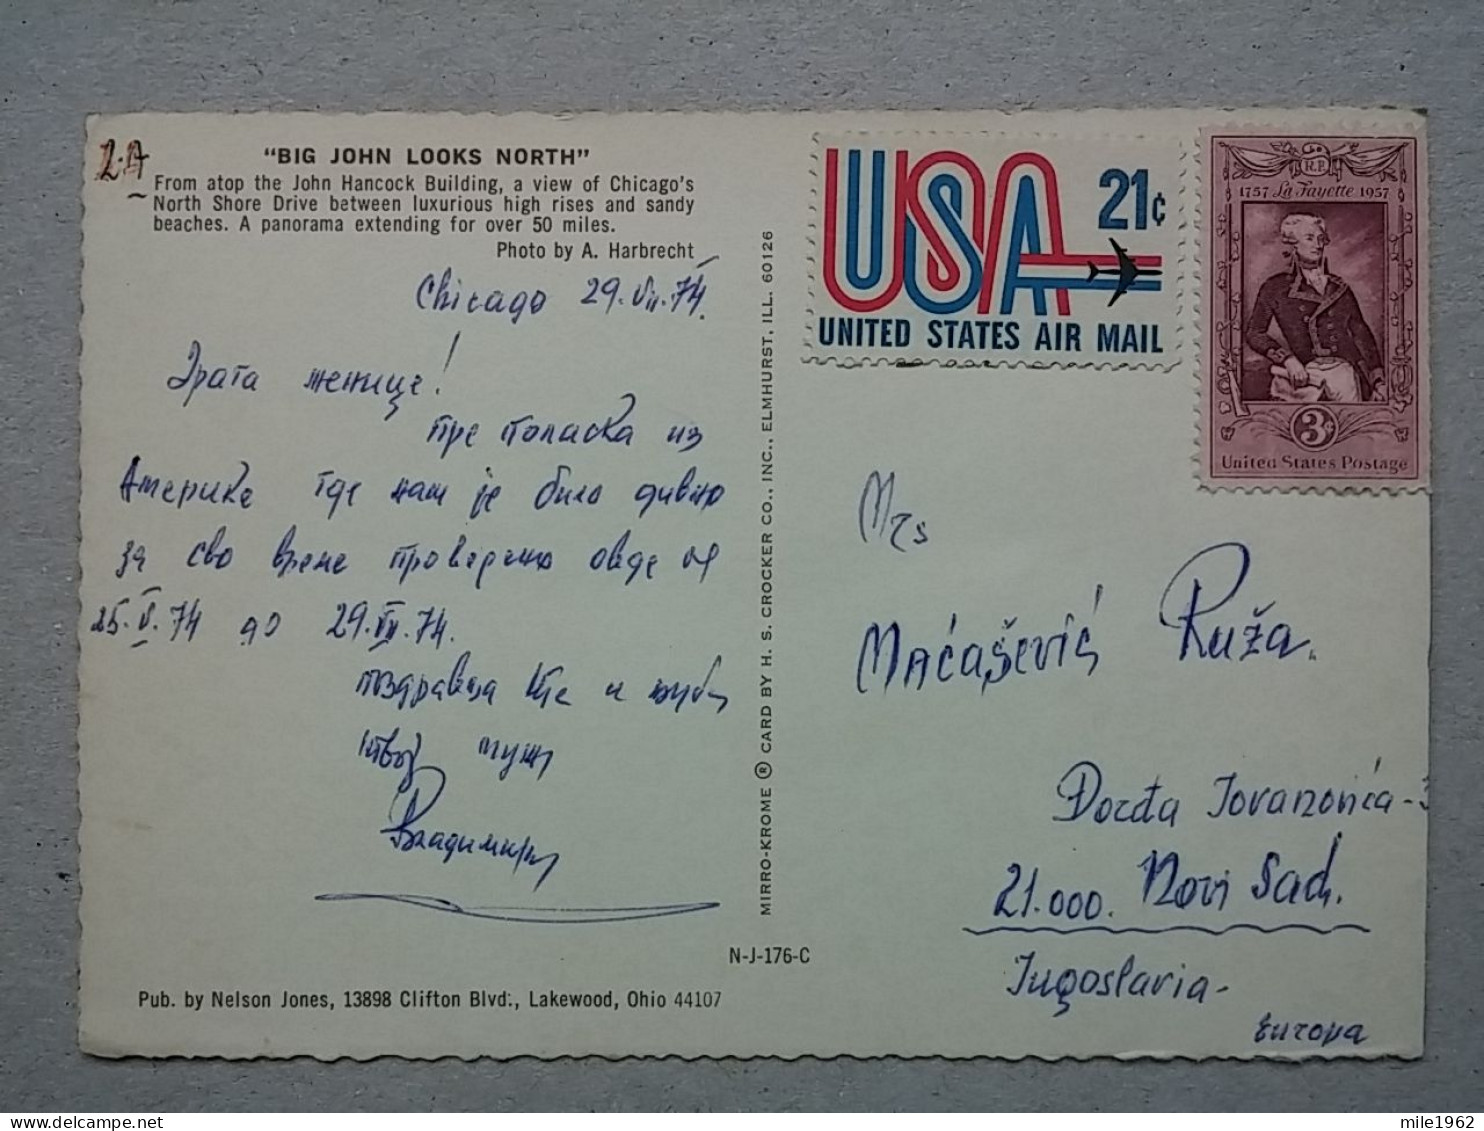 2.A
"BIG JOHN LOOKS NORTH"
From atop the John Hancock Building, a view of Chicago's
North Shore Drive between luxurious high rises and sandy
beaches. A panorama extending for over 50 miles.
Photo by A. Harbrecht
Chicago 29.VII.74.
Драга женице!
пре поласка из
Америке где нам је било дивно
за сво време проведено овде од
25.V.74 до 29.VII.74.
поздравља те и љуби
твој муж
Владимир
N-J-176-C
Pub. by Nelson Jones, 13898 Clifton Blvd., Lakewood, Ohio 44107
MIRRO-KROME ® CARD BY H. S. CROCKER CO., INC., ELMHURST, ILL. 60126
USA 21¢
UNITED STATES AIR MAIL
R.F.
1757 La Fayette 1957
3¢
United States Postage
Mrs
Maćašević Ruža
Đorđa Jovanovića-3
21.000. Novi Sad.
Jugoslavia-
Europa
mile1962